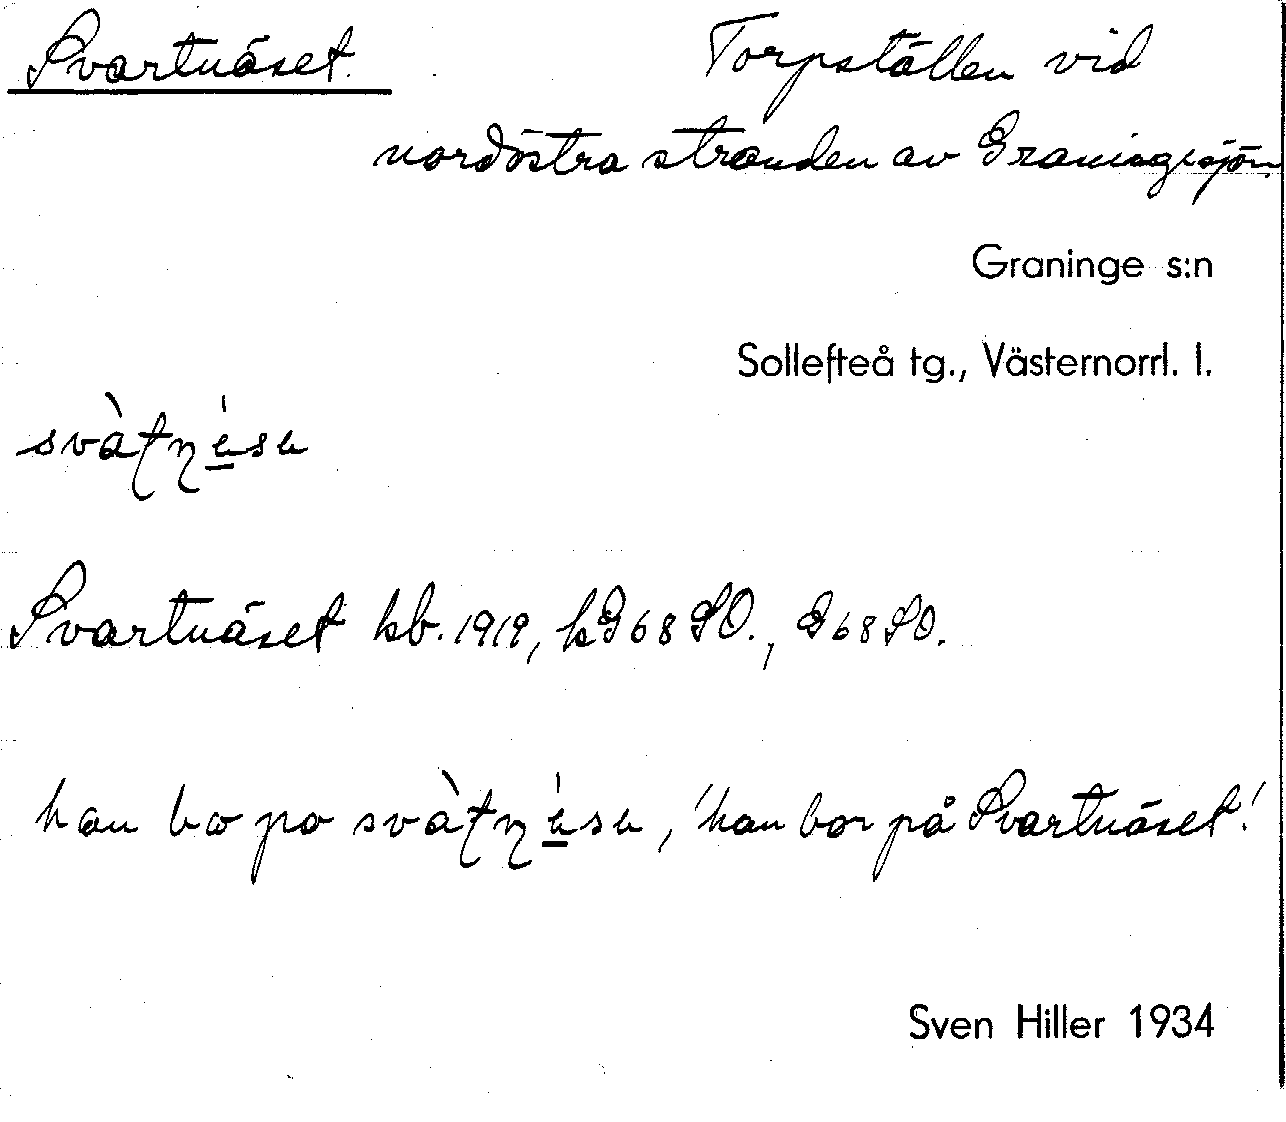 Svartnäset Torpställen vid
nordöstra stranden av Graningesjön.
Graninge s:n
Sollefteå tg., Västernorrl. l.
Svartnäset kb. 1919, kG 68 SO., G 68 SO.
han bo po , 'han bor på Svartnäset.'
Sven Hiller 1934